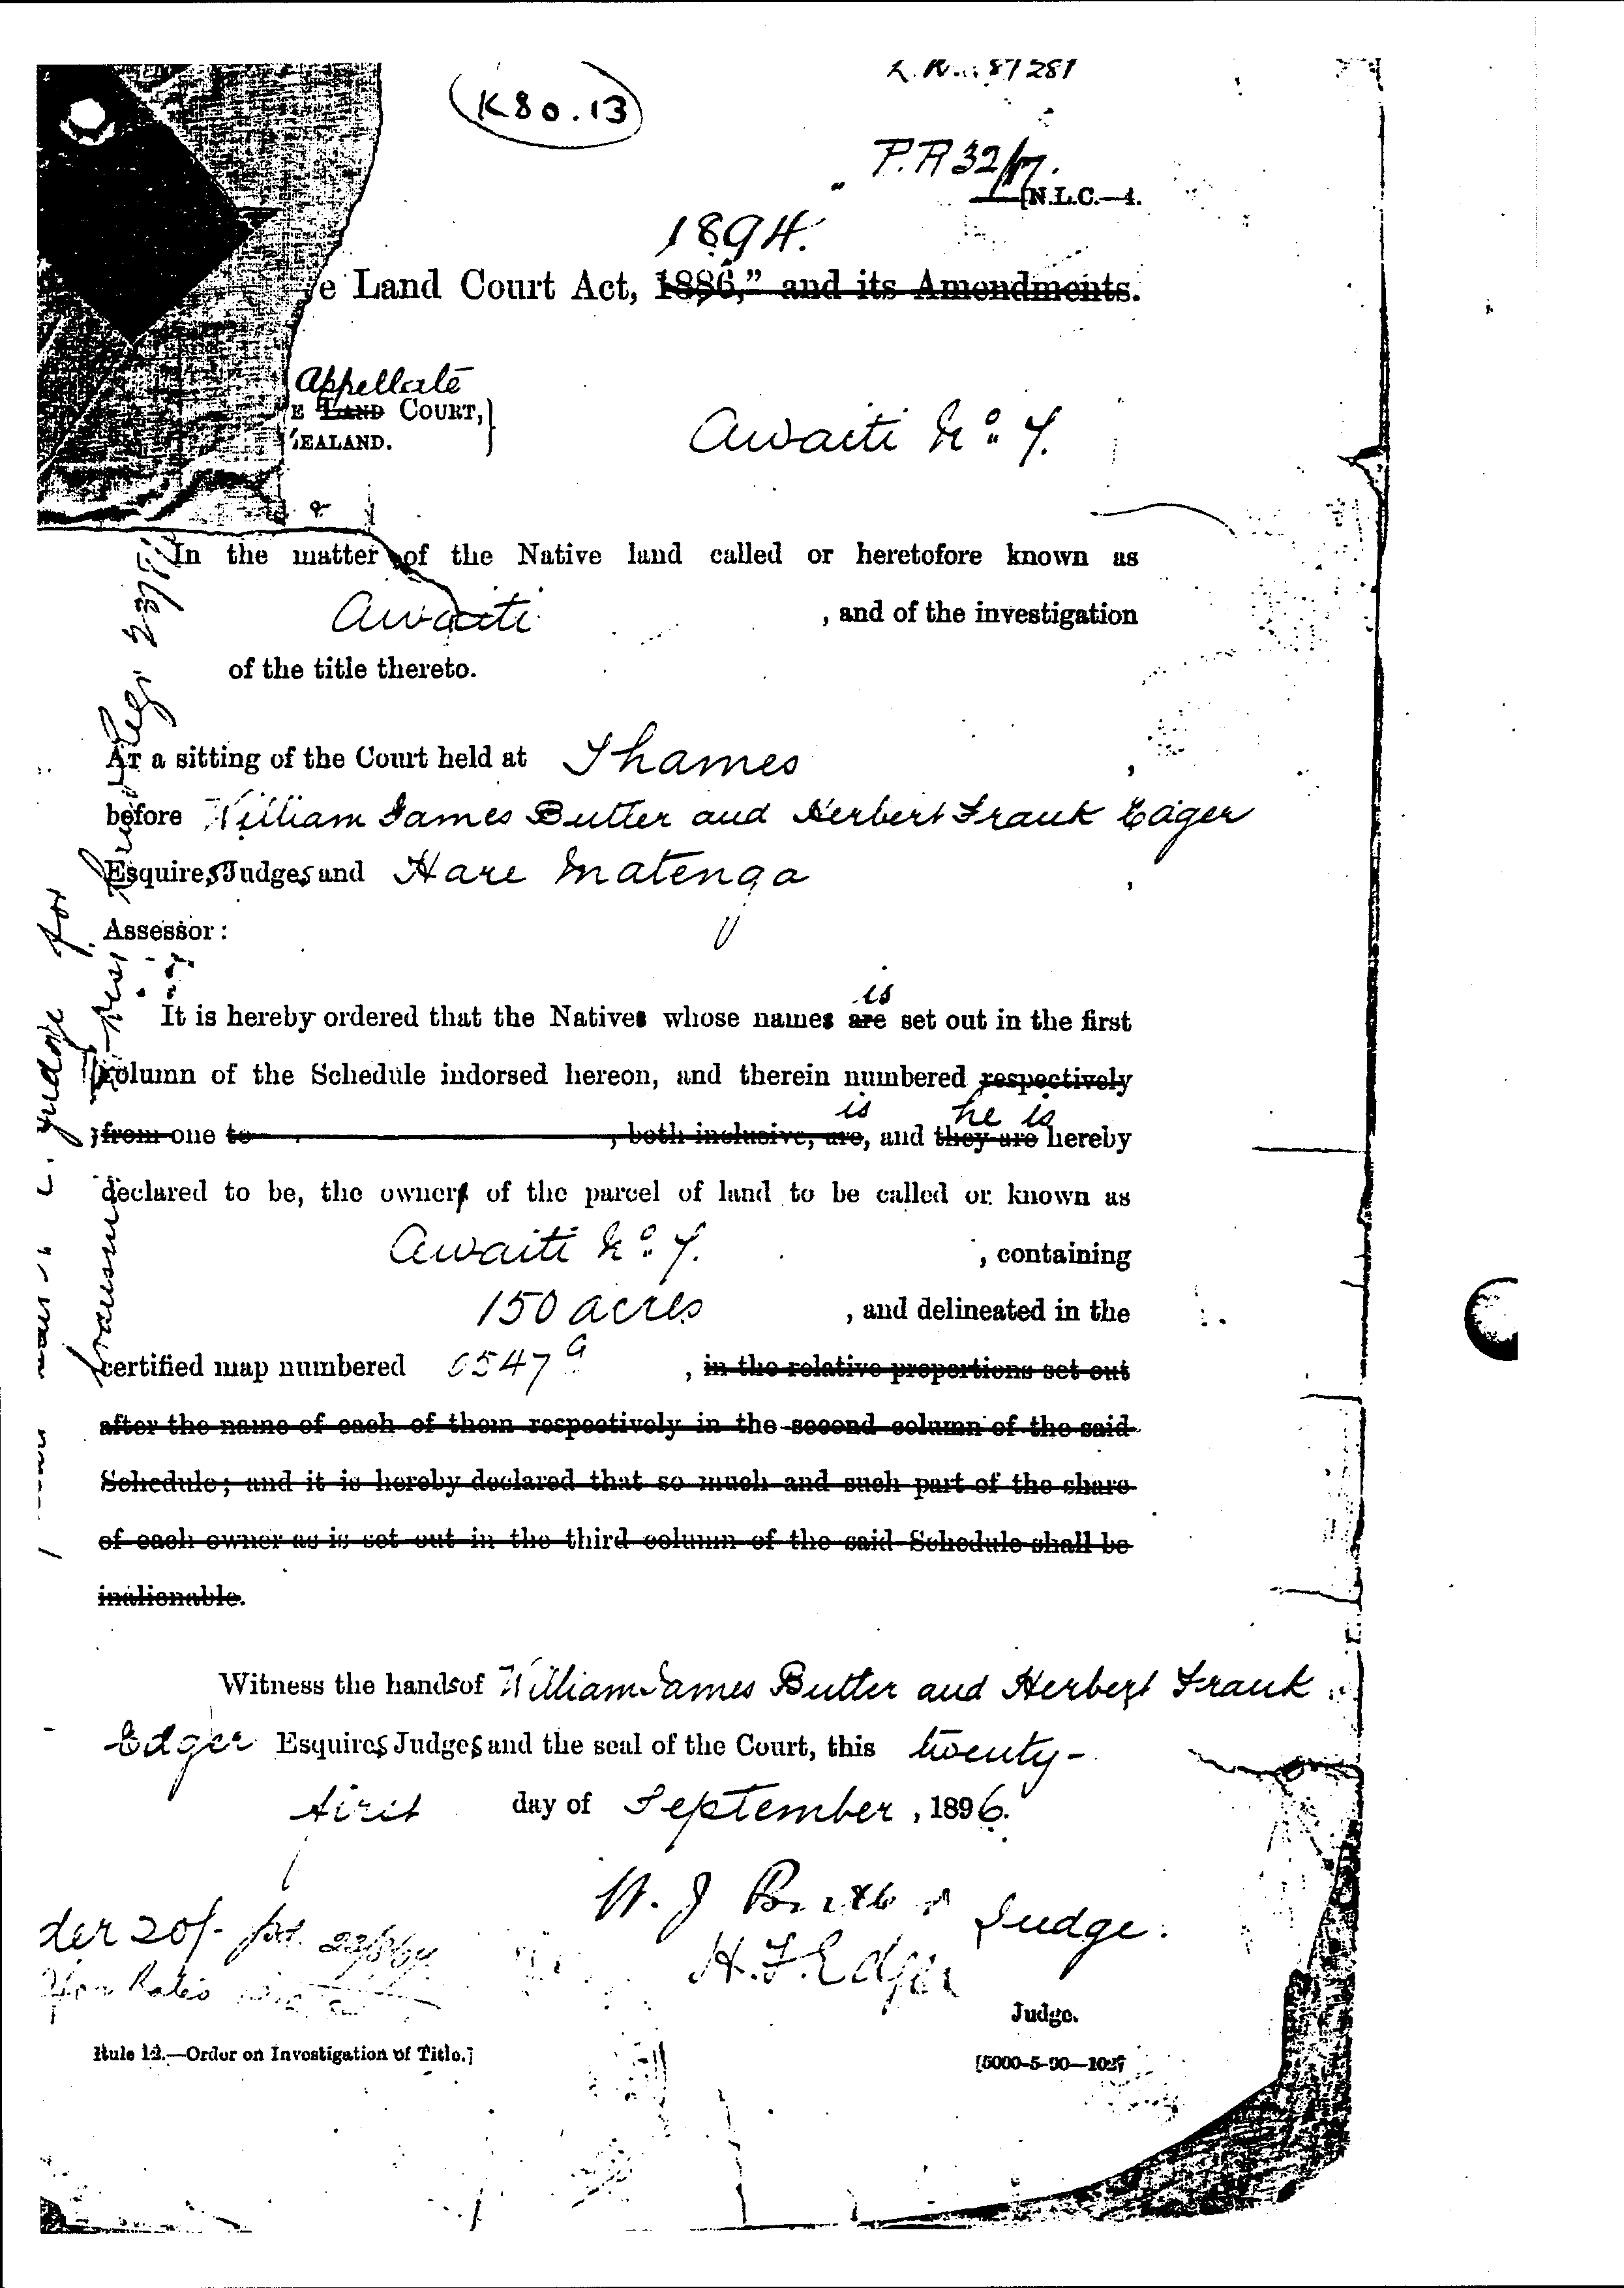 K80.13
87281
P.R 32/17.
[N.L.C.—4.
1894.
e Land Court Act, 1886,” and its Amendments.
Appellate
E LAND COURT,
EALAND.
Awaiti No. 7.
In the matter of the Native land called or heretofore known as
Awaiti , and of the investigation
of the title thereto.
At a sitting of the Court held at Thames ,
before William James Butler and Herbert Frank Edger
Esquires Judges and Hare Matenga ,
Assessor :
is
It is hereby ordered that the Natives whose names are set out in the first
column of the Schedule indorsed hereon, and therein numbered respectively
is he is
from one to , both inclusive, are, and they are hereby
declared to be, the owners of the parcel of land to be called or known as
Awaiti No. 7. , containing
150 acres , and delineated in the
certified map numbered 6547 a , in the relative proportions set out
after the name of each of them respectively in the second column of the said
Schedule; and it is hereby declared that so much and such part of the share
of each owner as is set out in the third column of the said Schedule shall be
inalienable.
Witness the hands of William James Butler and Herbert Frank
Edger Esquires Judges and the seal of the Court, this twenty-
first day of September , 1896.
W. J. Butler Judge.
H. F. Edger
Judge.
der 20/-
Rule 12.—Order on Investigation of Title.]
[5000-5-90—1027
judge for